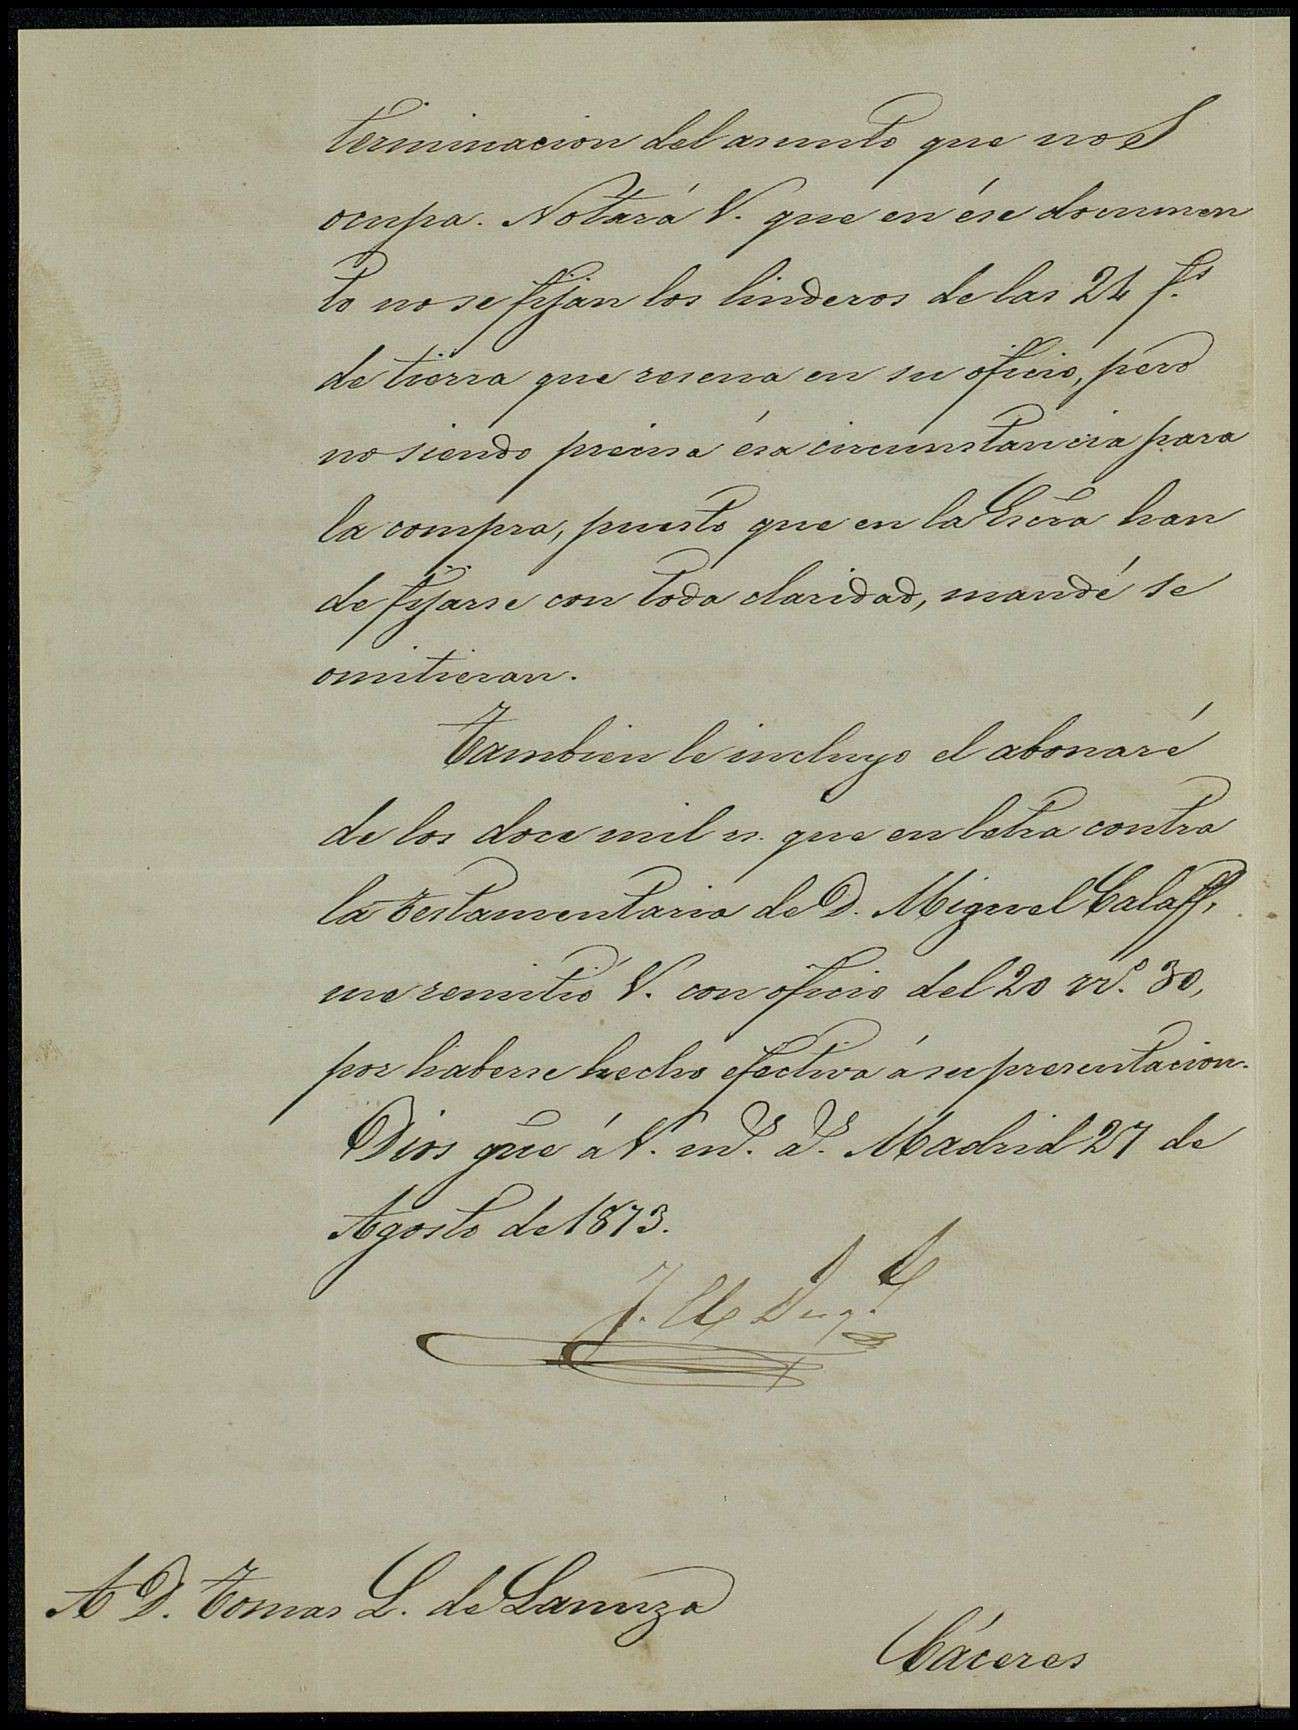 terminacion del asunto que nos
ocupa. Notará V. que en ése documen
to no se fijan los linderos de las 24 f.s
de tierra que resena en su oficio, pero
no siendo precisa ésa circunstancia para
la compra, puesto que en la Escra han
de fijarse con toda claridad, mandé se
omitieran.
Tambien le incluyo el abonaré
de los doce mil rs. que en letra contra
la testamentaria de D. Miguel Calaff,
me remitió V. con oficio del 20 nº. 30,
por haberse hecho efectiva á su presentacion.
Dios gue á V. ms. as. Madrid 27 de
Agosto de 1873.
A D. Tomas L. de Lanuza
Cáceres